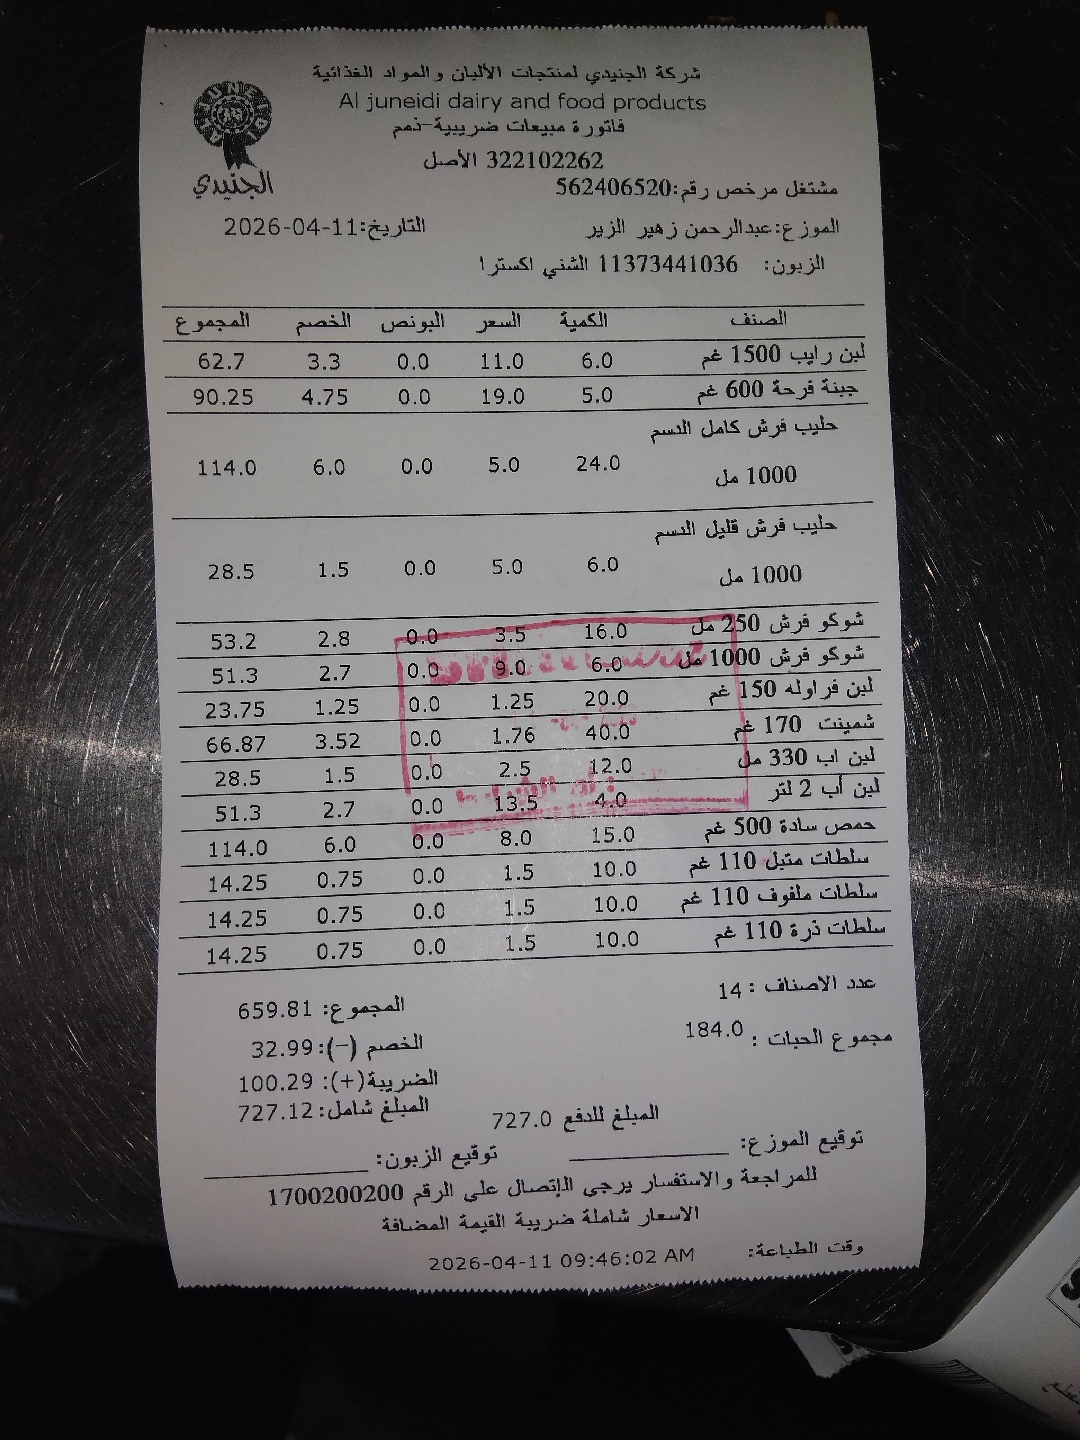 شركة الجنيدي لمنتجات الألبان والمواد الغذائية
Al juneidi dairy and food products
فاتورة مبيعات ضريبية-ذمم
322102262 الأصل
الجنيدي
مشتغل مرخص رقم:562406520
الموزع:عبدالرحمن زهير الزير التاريخ:2026-04-11
الزبون: 11373441036 الشني اكسترا
الصنف الكمية السعر البونص الخصم المجموع
لبن رايب 1500 غم 6.0 11.0 0.0 3.3 62.7
جبنة فرحة 600 غم 5.0 19.0 0.0 4.75 90.25
حليب فرش كامل الدسم
1000 مل 24.0 5.0 0.0 6.0 114.0
حليب فرش قليل الدسم
1000 مل 6.0 5.0 0.0 1.5 28.5
شوكو فرش 250 مل 16.0 3.5 0.0 2.8 53.2
شوكو فرش 1000 مل 6.0 9.0 0.0 2.7 51.3
لبن فراوله 150 غم 20.0 1.25 0.0 1.25 23.75
شمينت 170 غم 40.0 1.76 0.0 3.52 66.87
لبن اب 330 مل 12.0 2.5 0.0 1.5 28.5
لبن أب 2 لتر 4.0 13.5 0.0 2.7 51.3
حمص سادة 500 غم 15.0 8.0 0.0 6.0 114.0
سلطات متبل 110 غم 10.0 1.5 0.0 0.75 14.25
سلطات ملفوف 110 غم 10.0 1.5 0.0 0.75 14.25
سلطات ذرة 110 غم 10.0 1.5 0.0 0.75 14.25
عدد الاصناف : 14 المجموع: 659.81
مجموع الحبات : 184.0 الخصم (-): 32.99
الضريبة(+): 100.29
المبلغ شامل: 727.12
المبلغ للدفع 727.0
توقيع الموزع: توقيع الزبون:
للمراجعة والاستفسار يرجى الإتصال على الرقم 1700200200
الاسعار شاملة ضريبة القيمة المضافة
وقت الطباعة: 2026-04-11 09:46:02 AM